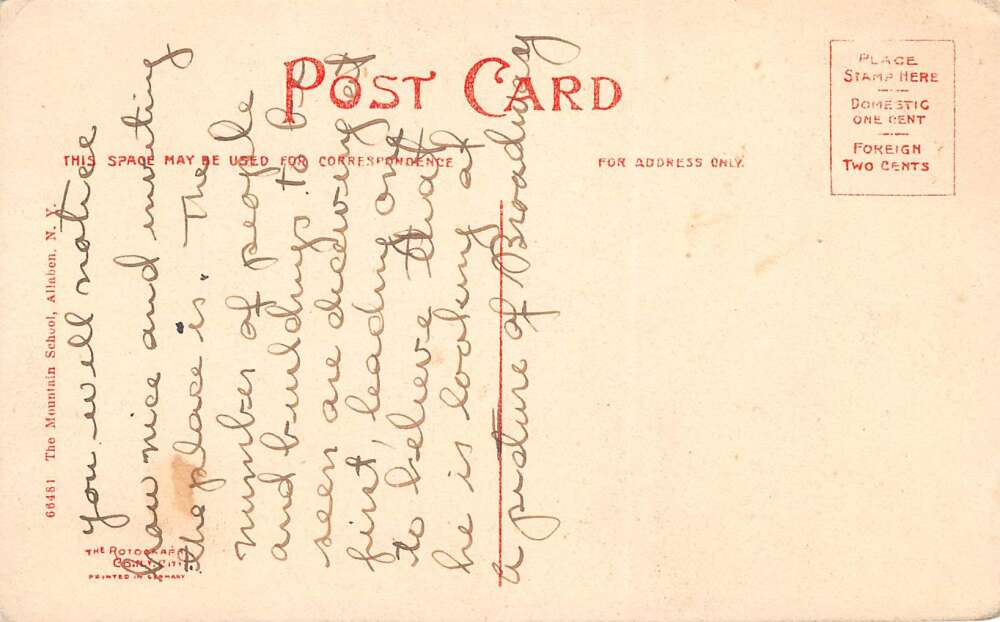 POST CARD
THIS SPACE MAY BE USED FOR CORRESPONDENCE
FOR ADDRESS ONLY.
PLACE
STAMP HERE
DOMESTIC
ONE CENT
FOREIGN
TWO CENTS
66481 The Mountain School, Allaben, N. Y.
you will notice
how nice and inviting
the place is. The
number of people
and buildings to be
seen are deceiving at
first, leading one
to believe that
he is looking at
a picture of Broadway
THE ROTOGRAPH
CO. N.Y. CITY
PRINTED IN GERMANY